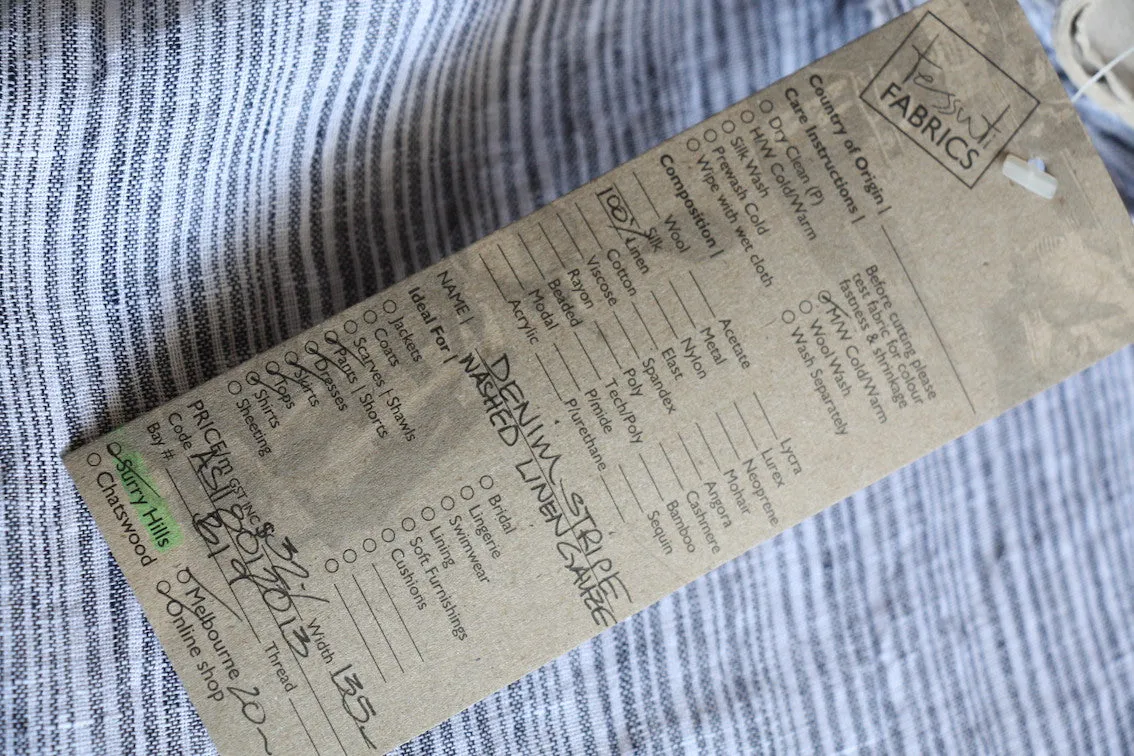 tessuti
FABRICS
Country of Origin |
Care Instructions |
Dry Clean (P)
H/W Cold/Warm
Silk Wash
Prewash Cold
Wipe with wet cloth
Before cutting please
test fabric for colour
fastness & shrinkage
M/W Cold/Warm
Wool Wash
Wash Separately
Composition |
Wool
Silk
100% Linen
Cotton
Viscose
Rayon
Beaded
Modal
Acrylic
Acetate
Metal
Nylon
Elast
Spandex
Poly
Tech/Poly
P/mide
P/urethane
Lycra
Lurex
Neoprene
Mohair
Angora
Cashmere
Bamboo
Sequin
NAME | DENIM STRIPE
WASHED LINEN GAUZE
Ideal For |
Jackets
Coats
Scarves + Shawls
Pants | Shorts
Dresses
Skirts
Tops
Shirts
Sheeting
Bridal
Lingerie
Swimwear
Lining
Soft Furnishings
Cushions
PRICE/m GST INC $
Width 135
Code
Bay #
Thread
Surry Hills
Chatswood
Melbourne 20
Online shop